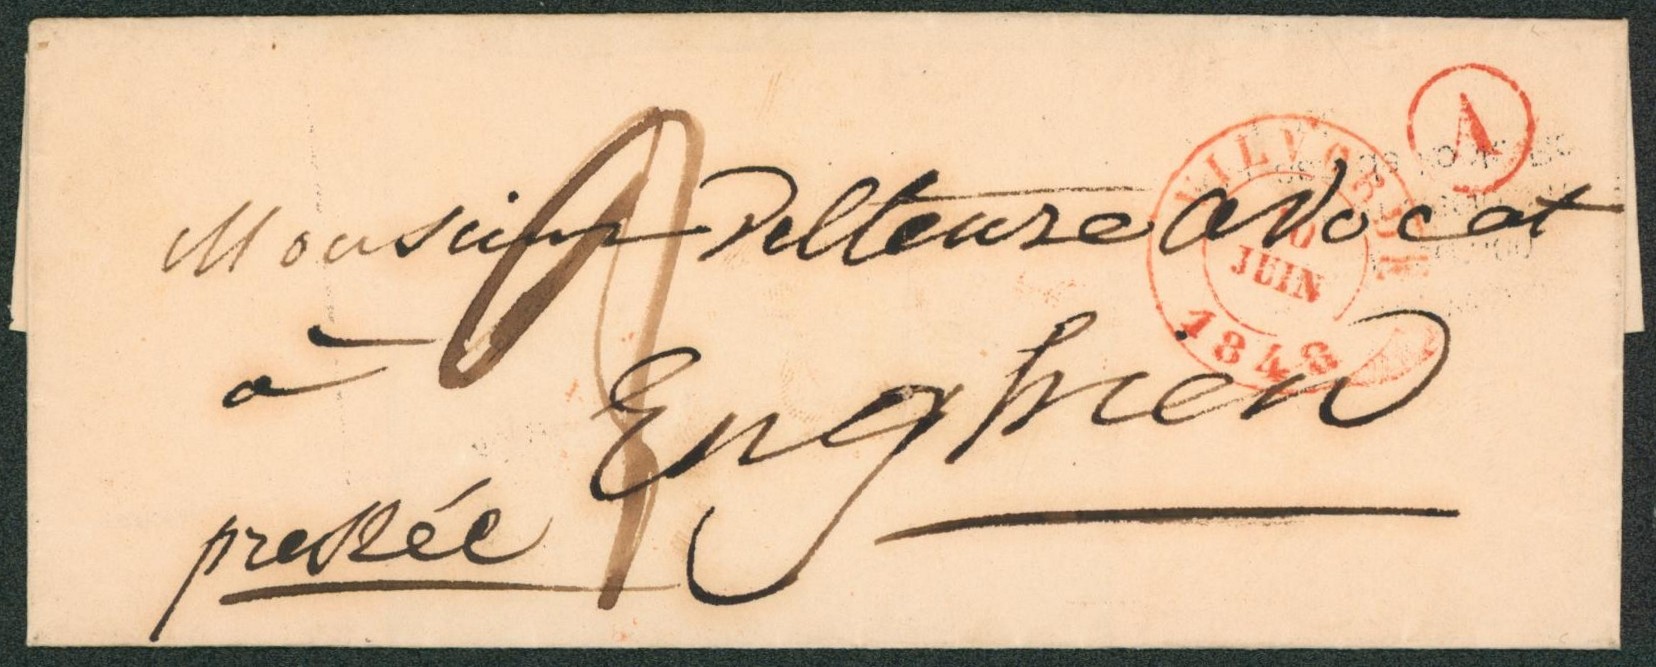 A
VILVORDE
10
JUIN
1848
Monsieur Delteure avocat
à
Enghien
pressée